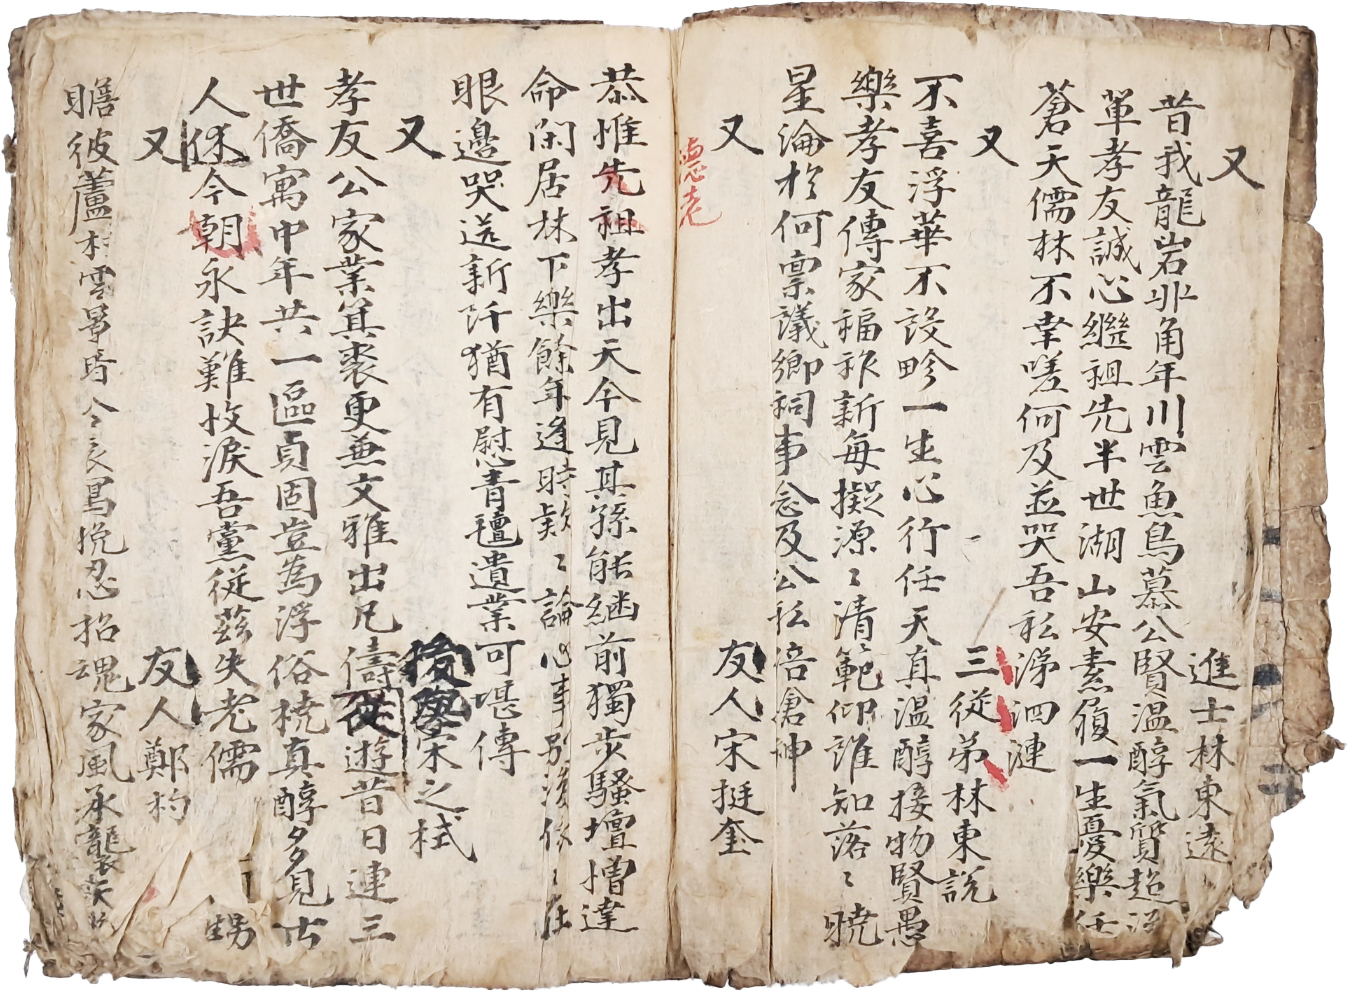 又 進士林東遠
昔我龍岩丱角年川雲魚鳥慕公賢温醇氣質超
單孝友誠心繼祖先半世湖山安素履一生憂樂任
蒼天儒林不幸嗟何及並哭吾私涕泗漣
又 三從弟林東說
不喜浮華不設畛一生心行任天真温醇接物賢愚
樂孝友傳家福祚新每擬源〻清範仰誰知落〻曉
星淪於何禀議鄉祠事念及公私倍愴神
又 友人宋挺奎
德老
恭惟先祖孝出天今見其孫能繼前獨步騷壇增達
命閑居林下樂餘年逢時欵〻論心事別後依〻在
眼邊哭送新阡猶有慰青氊遺業可堪傳
又 後學宋之栻
孝友公家業箕裘更兼文雅出凡儔從遊昔日連三
世僑寓中年共一區貞固豈為浮俗撓真醇多見古
人休今朝永訣難收淚吾黨從玆失老儒
又 友人鄭杓
甥
瞻彼蘆村雲晷昏今長寫挽忍招魂家風承襲